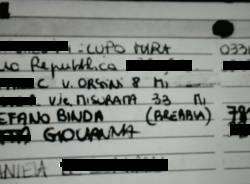 : LUPO MARA 033
Repubblica
C V. ORSINI 8 MI
V.LE MISURATA 33 MI
EFANO BINDA (BREBBIA) 78
GIOVANNA
ANIELA